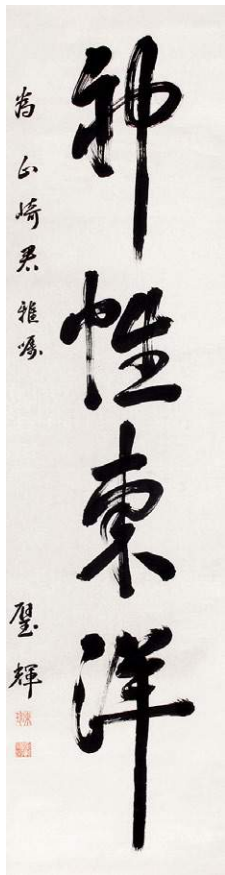 神性東洋
為山崎君雅嘱
璧輝